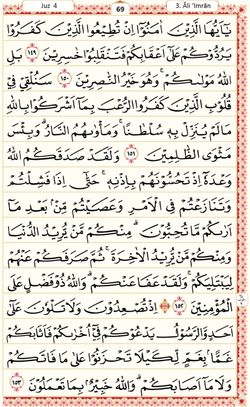 Juz 4
69
3. Āli 'Imrān
يٰٓاَيُّهَا الَّذِيْنَ اٰمَنُوْٓا اِنْ تُطِيْعُوا الَّذِيْنَ كَفَرُوْا
يَرُدُّوْكُمْ عَلٰٓى اَعْقَابِكُمْ فَتَنْقَلِبُوْا خٰسِرِيْنَ ١٤٩ بَلِ
اللّٰهُ مَوْلٰىكُمْ ۚ وَهُوَ خَيْرُ النّٰصِرِيْنَ ١٥٠ سَنُلْقِيْ فِيْ
قُلُوْبِ الَّذِيْنَ كَفَرُوا الرُّعْبَ بِمَآ اَشْرَكُوْا بِاللّٰهِ
مَا لَمْ يُنَزِّلْ بِهٖ سُلْطٰنًا ۚ وَمَأْوٰىهُمُ النَّارُ ۗ وَبِئْسَ
مَثْوَى الظّٰلِمِيْنَ ١٥١ وَلَقَدْ صَدَقَكُمُ اللّٰهُ
وَعْدَهٗٓ اِذْ تَحُسُّوْنَهُمْ بِاِذْنِهٖ ۚ حَتّٰىٓ اِذَا فَشِلْتُمْ
وَتَنَازَعْتُمْ فِى الْاَمْرِ وَعَصَيْتُمْ مِّنْۢ بَعْدِ مَآ
اَرٰىكُمْ مَّا تُحِبُّوْنَ ۗ مِنْكُمْ مَّنْ يُّرِيْدُ الدُّنْيَا
وَمِنْكُمْ مَّنْ يُّرِيْدُ الْاٰخِرَةَ ۚ ثُمَّ صَرَفَكُمْ عَنْهُمْ
لِيَبْتَلِيَكُمْ ۚ وَلَقَدْ عَفَا عَنْكُمْ ۗ وَاللّٰهُ ذُوْ فَضْلٍ عَلَى
الْمُؤْمِنِيْنَ ١٥٢ اِذْ تُصْعِدُوْنَ وَلَا تَلْوٗنَ عَلٰٓى
اَحَدٍ وَّالرَّسُوْلُ يَدْعُوْكُمْ فِيْٓ اُخْرٰىكُمْ فَاَثَابَكُمْ
غَمًّاۢ بِغَمٍّ لِّكَيْلَا تَحْزَنُوْا عَلٰى مَا فَاتَكُمْ
وَلَا مَآ اَصَابَكُمْ ۗ وَاللّٰهُ خَبِيْرٌۢ بِمَا تَعْمَلُوْنَ ١٥٣